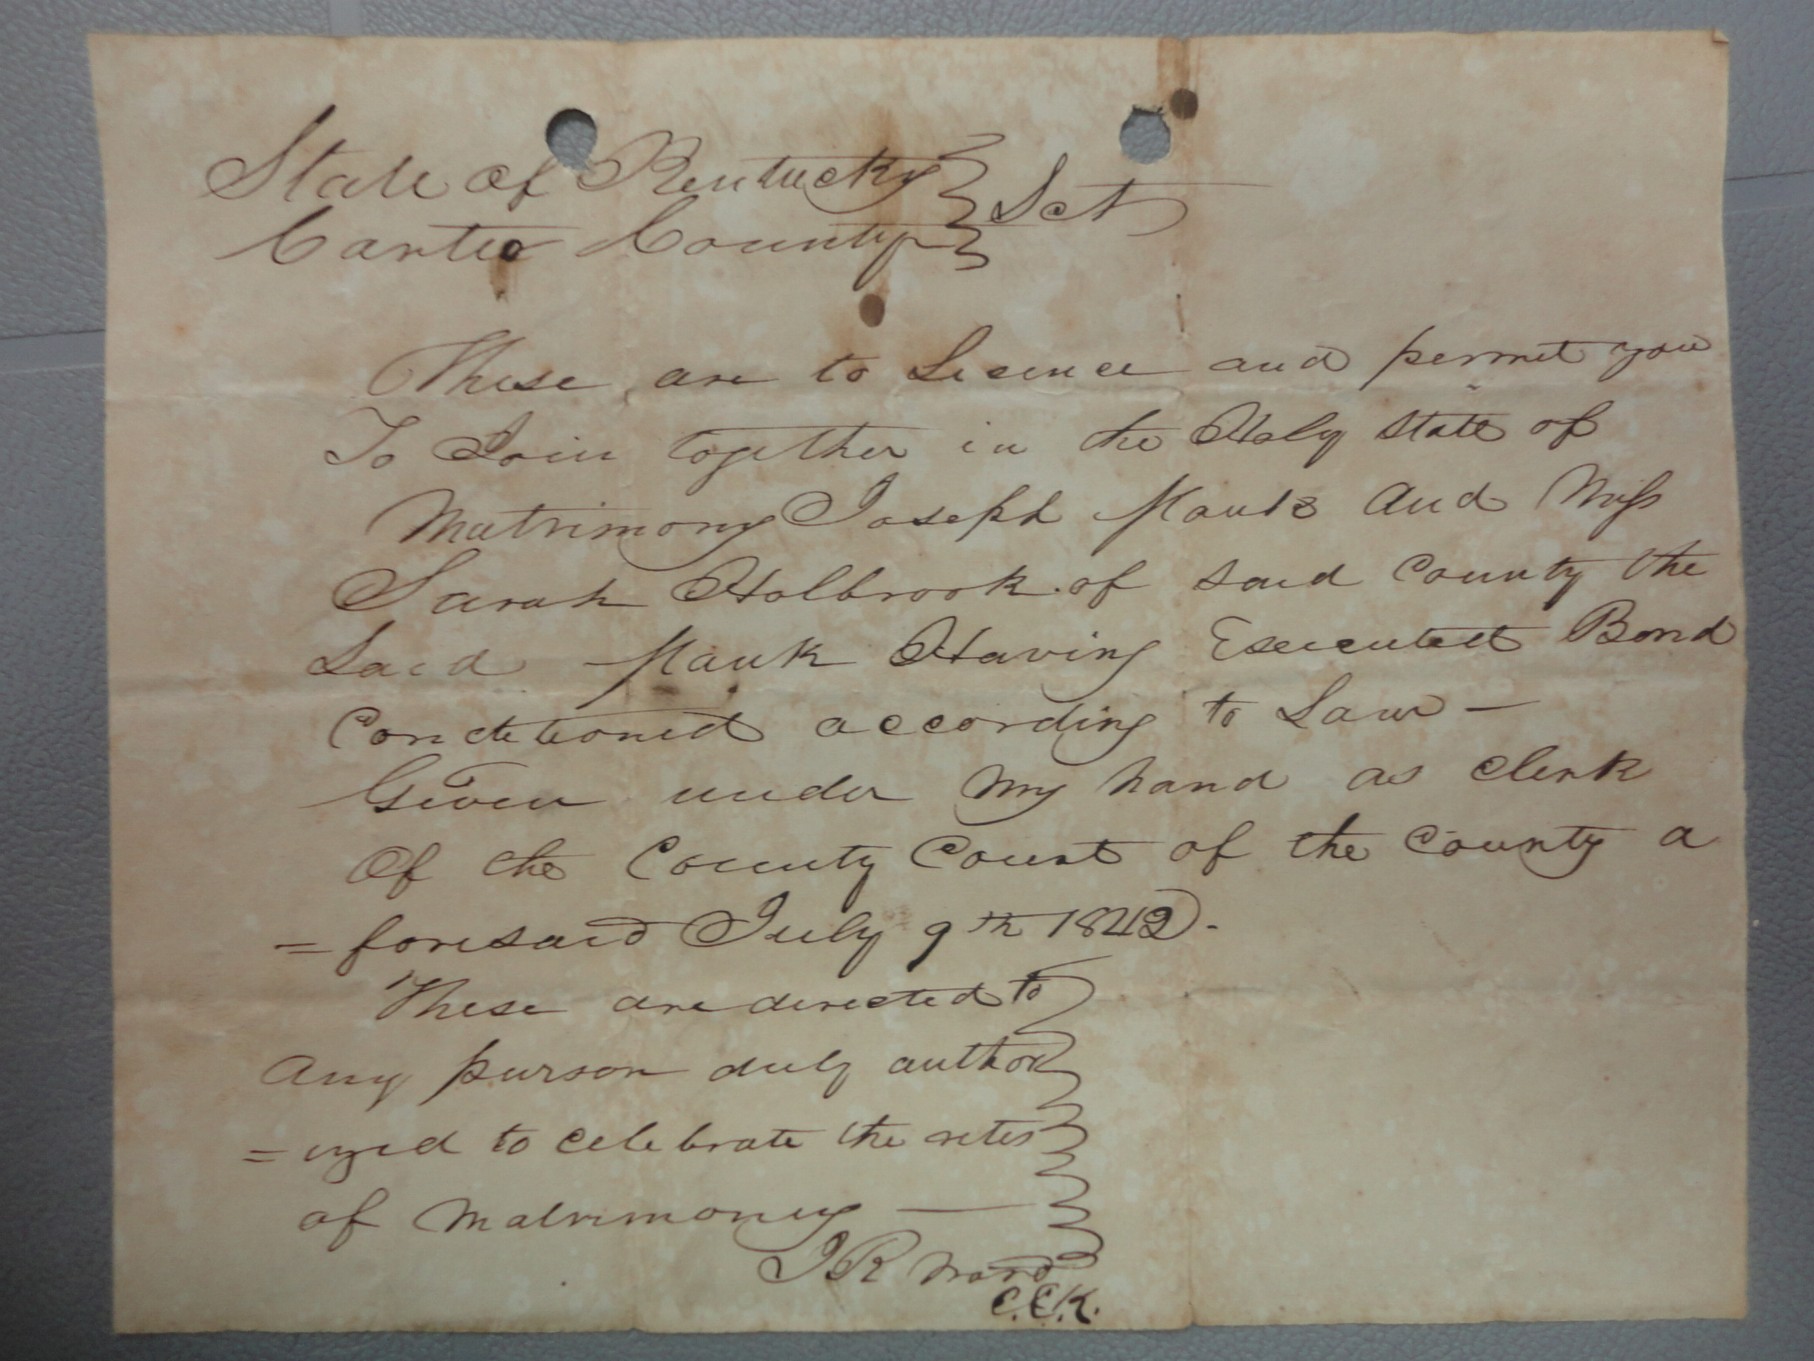 State of Kentucky } Sct
Carter County }
These are to Licence and permit you
To Join together in the Holy State of
Matrimony Joseph Mauk and Miss
Sarah Holbrook of said County the
Said Mauk Having Executed Bond
Conditioned according to Law —
Given under my hand as clerk
Of the County Court of the County a
= foresaid July 9th 1842.
These are directed to
any purson duly author
= ized to celebrate the rites
of Matrimony —
J R Ward
C.C.K.